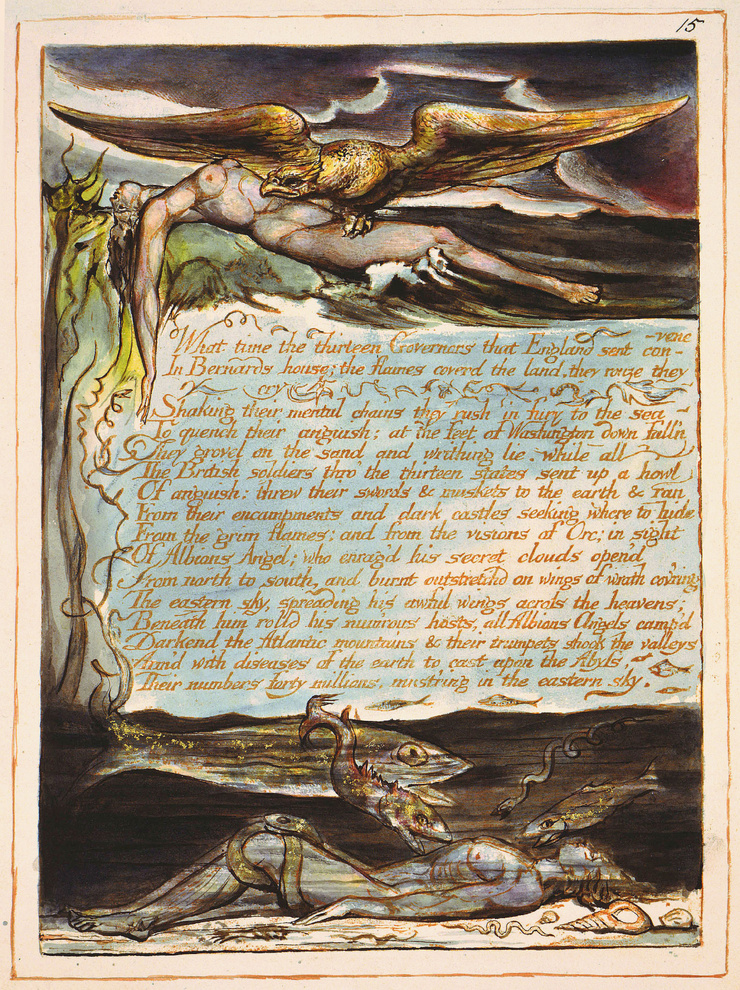 15
-vene
What time the thirteen Governors that England sent con-
In Bernards house; the flames coverd the land, they rouze they
cry
Shaking their mental chains they rush in fury to the sea
To quench their anguish; at the feet of Washington down fall'n
They grovel on the sand and writhing lie. while all
The British soldiers thro' the thirteen states sent up a howl
Of anguish: threw their swords & muskets to the earth & ran
From their encampments and dark castles seeking where to hide
From the grim flames; and from the visions of Orc; in sight
Of Albions Angel; who enrag'd his secret clouds open'd
From north to south, and burnt outstretchd on wings of wrath cov'ring
The eastern sky, spreading his awful wings across the heavens;
Beneath him rolld his num'rous hosts, all Albions Angels camp'd
Darkend the Atlantic mountains & their trumpets shook the valleys
Arm'd with diseases of the earth to cast upon the Abyss,
Their numbers forty millions, must'ring in the eastern sky.